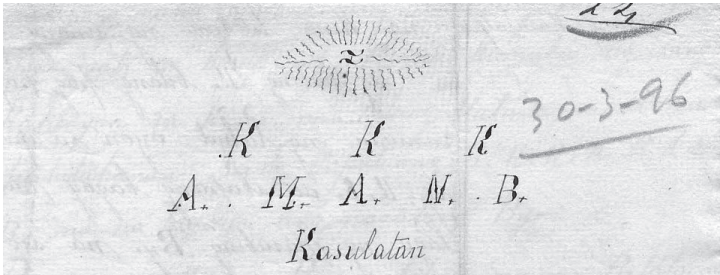 30-3-96
K K K
A. M. A. N. B.
Kasulatan